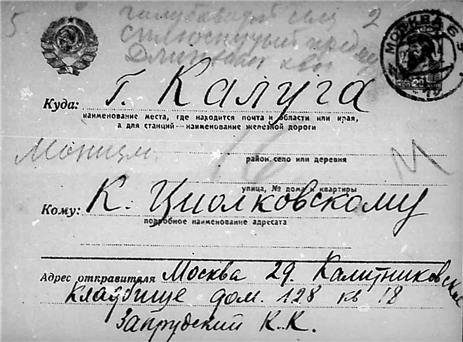 5
2
МОСКВА 6
Куда: г. Калуга
наименование места, где находится почта и области или края,
а для станций—наименование железной дороги
М
район, село или деревня
улица, № дома и квартиры
Кому: К. Циолковскому
подробное наименование адресата
Адрес отправителя Москва 29. Калитниковское
кладбище дом. 128 кв 18
Запрудский К.К.